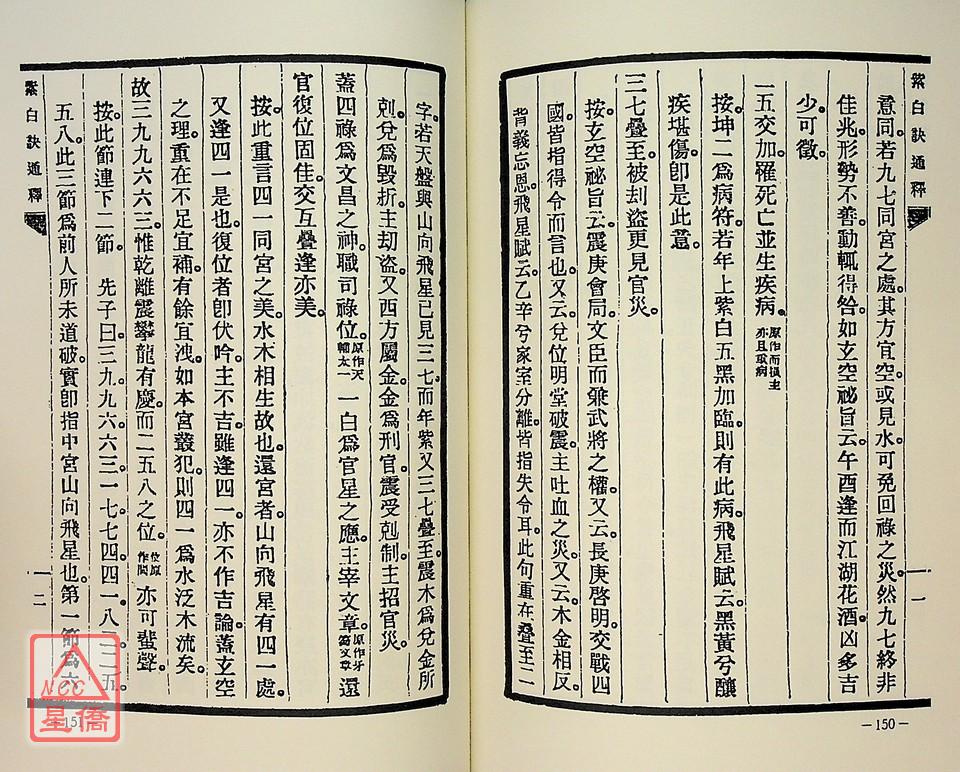 紫白訣通釋
意同。若九七同宮之處。其方宜空。或見水。可免回祿之災。然九七終非
佳兆。形勢不善。動輒得咎。如玄空祕旨云。午酉逢而江湖花酒。凶多吉
少。可徵。
一五交加。罹死亡並生疾病。原作而損主亦且取病
按。坤二爲病符。若年上紫白五黑加臨。則有此病。飛星賦云。黑黃兮釀
疾堪傷。卽是此意。
三七疊至。被刦盜更見官災。
按。玄空祕旨云。震庚會局。文臣而兼武將之權。又云。長庚啓明。交戰四
國。皆指得令而言也。又云。兌位明堂破震。主吐血之災。又云。木金相反。
背義忘恩。飛星賦云。乙辛兮家室分離。皆指失令耳。此句重在疊至二
一一
—150—
字。若天盤與山向飛星已見三七。而年紫又三七疊至。震木爲兌金所
剋。兌爲毀折。主劫盜。又西方屬金。金爲刑官。震受剋制。主招官災。
蓋四祿爲文昌之神。職司祿位。原作天輔太一一白爲官星之應。主宰文章。原作牙笏文章還
官復位固佳。交互疊逢亦美。
按。此重言四一同宮之美。水木相生故也。還宮者。山向飛星有四一處。
又逢四一是也。復位者。卽伏吟。主不吉。雖逢四一。亦不作吉論。蓋玄空
之理。重在不足宜補。有餘宜洩。如本宮叢犯。則四一爲水泛木流矣。
故三九九六六三。惟乾離震攀龍有慶。而二五八之位。位原作間亦可蜚聲。
按。此節連下二節。 先子曰。三九。九六。六三。一七。七四。四一。八二。二五。
五八。此三節爲前人所未道破。實卽指中宮山向飛星也。第一節爲六
紫白訣通釋
一二
151
NCC
星僑